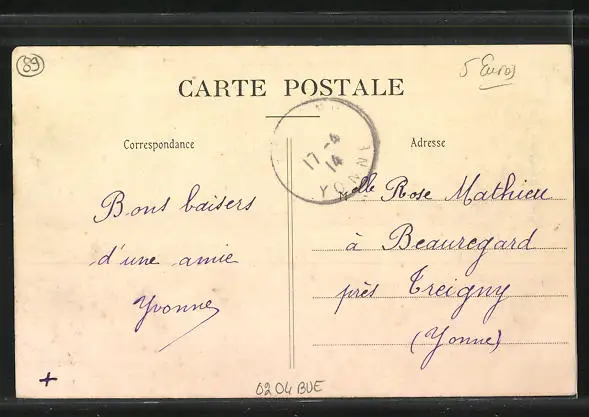 89
5 Euros
CARTE POSTALE
17-4
14
YONNE
Correspondance
Adresse
Bons baisers
d'une amie
Yvonne
Melle Rose Mathieu
à Beauregard
près Treigny
(Yonne)
+
0204 BUE